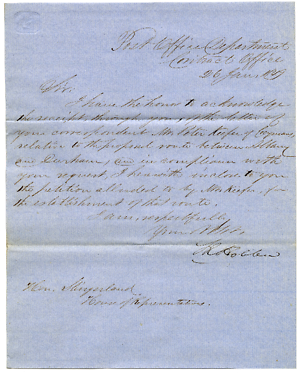 Post Office Department
Contract Office
26 Jan.
Sir.
I have the honor to acknowledge
the receipt through you, of the letter of
your correspondent Mr. Keefer of
relative to the proposed route between Albany
and Durham, and in compliance with
your request, I herewith inclose to you
the petition alluded to by Mr Keefer, for
the establishment of that route.
I am, respectfully
Your
Hon. Slingerland
House of Representatives.